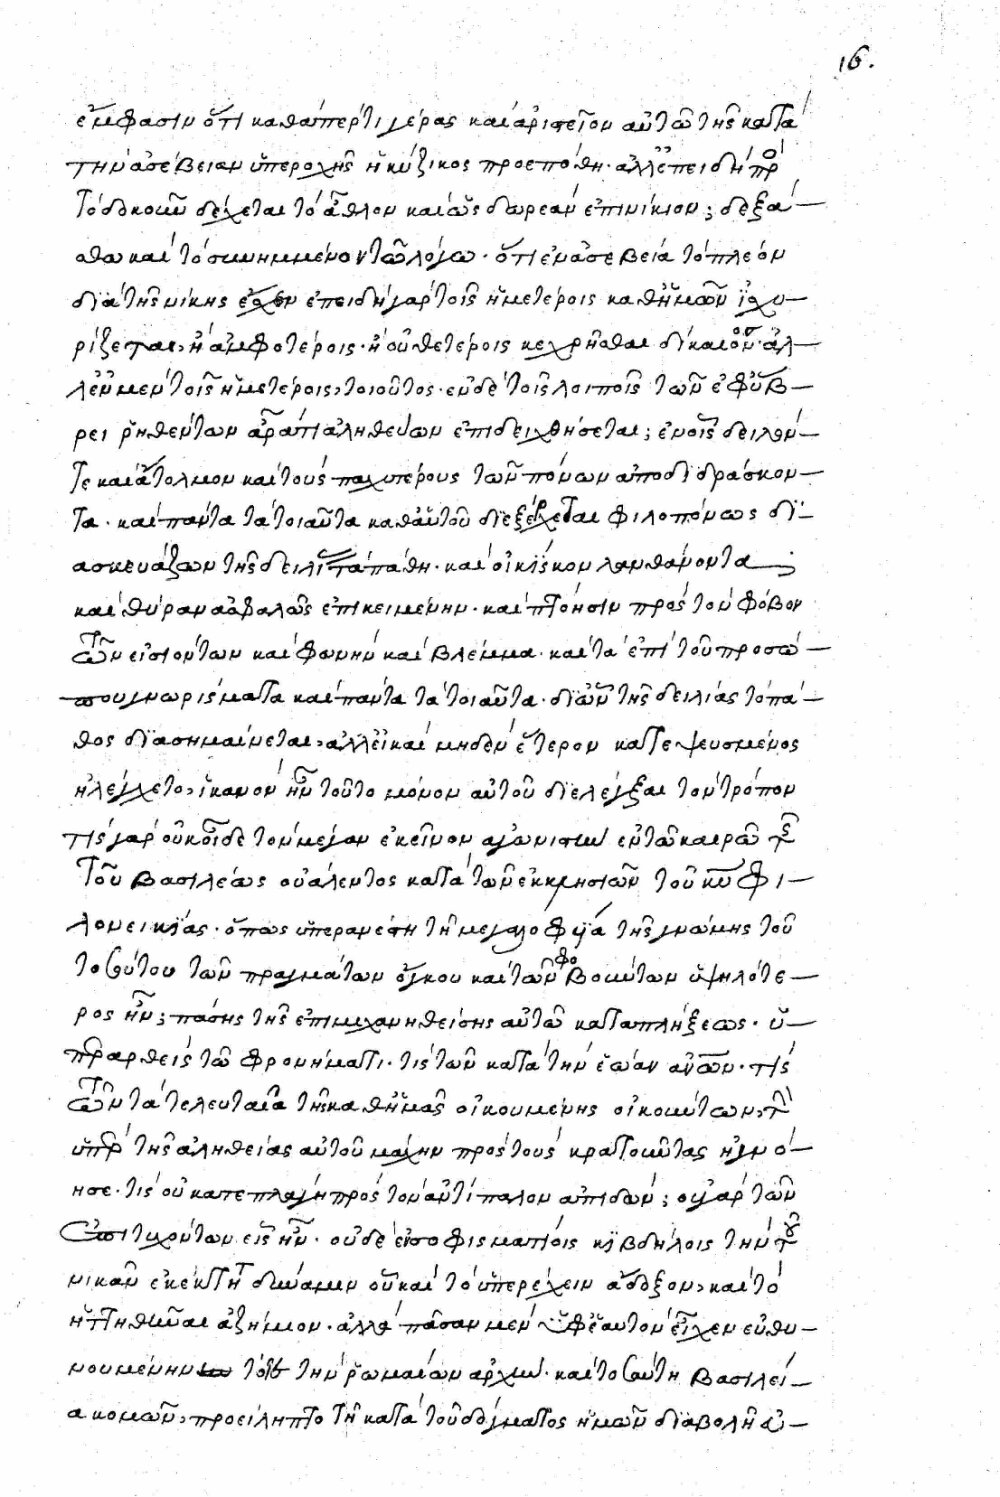 16.
ἔμφασιν ὅτι καθάπερ τι γέρας καὶ ἀριστεῖον αὐτῶ τῆς κατὰ
τὴν ἀσέβειαν ὑπεροχῆς ἡ κύζικος προεπόθη· ἀλλ' ἐπειδὴ πρὸ
τὸ δοκοῦν δέχεται τὸ ἆθλον καὶ ὡς δωρεὰν ἐπινίκιον; δεξά—
σθω καὶ τὸ συνημμένον τῶ λόγω· ὅτι ἐν ἀσεβεία τὸ πλέον
διὰ τῆς νίκης ἔσχεν ἐπειδὴ γὰρ τοῖς ἡμετέροις καθ' ἡμῶν ἰσχυ—
ρίζεται, ἢ ἀμφοτέροις· ἢ οὐθετέροις κεχρῆσθαι δίκαιον· ἀλ—
λ' ἐν μὲν τοῖς ἡμετέροις, τοιοῦτος· ἐν δὲ τοῖς λοιποῖς τῶν ἐφ' ὕβ—
ρει ῥηθέντων ἆρά τι ἀληθεύων ἐπιδειχθήσεται; ἐν οἷς δειλόν—
τε καὶ ἄτολμον καὶ τοὺς παχυτέρους τῶν πόνων ἀποδιδράσκον—
τα· καὶ πάντα τὰ τοιαῦτα καθ' αὑτοῦ διεξέρχεται φιλοπόνως δι—
ασκευάζων τῆς δειλίας τὰ πάθη· καὶ οἰκίσκον λανθάνοντα
καὶ θύραν ἀσφαλῶς ἐπικειμένην· καὶ πτόησιν πρὸς τὸν φόβον
τῶν εἰσιόντων καὶ φωνὴν καὶ βλέμμα· καὶ τὰ ἐπὶ τοῦ προσώ—
που γνωρίσματα καὶ πάντα τὰ τοιαῦτα· δι' ὧν τῆς δειλίας τὸ πά—
θος διασημαίνεται, ἀλλ' εἰ καὶ μηδὲν ἕτερον κατεψευσμένος
ἠλέγχετο, ἱκανὸν ἦν τοῦτο μόνον αὐτοῦ διελέγξαι τὸν τρόπον
τίς γὰρ οὐκ οἶδε τὸν μέγαν ἐκεῖνον ἀγῶνιστὴν ἐν τῶ καιρῶ τῆς
τοῦ βασιλέως οὐάλεντος κατὰ τῶν ἐκκλησιῶν τοῦ κυ φι—
λονεικίας· ὅπως ὑπερανέστη τῆ μεγαλοφυία τῆς γνώμης τοῦ
τοσούτου τῶν πραγμάτων ὄγκου καὶ τῶν φοβούντων ὑψηλότε—
ρος ἦν; πάσης τῆς ἐπιμηχανηθείσης αὐτῶ καταπλήξεως· ὑ—
περαρθεὶς τῶ φρονήματι· τίς τῶν κατὰ τὴν ἑώαν ἀνων· τίς
τῶν τὰ τελευταῖα τῆς καθ' ἡμᾶς οἰκουμένης οἰκούντων, τὴν
ὑπὲρ τῆς ἀληθείας αὐτοῦ μάχην πρὸς τοὺς κρατοῦντας ἠγνό—
ησε· τίς οὐ κατεπλάγη πρὸς τὸν ἀντίπαλον ἀπιδών; οὐ γὰρ τῶν
ἐπιτυχόντων εἷς ἦν· οὐδὲ ἐν σοφίσμασί τισι κιβδήλοις τὴν τοῦ
νικᾶν ἐκέκτητο δύναμιν οὗ καὶ τὸ ὑπερέχειν ἄδοξον, καὶ τὸ
ἡττηθῆναι ἀζήμιον· ἀλλὰ πᾶσαν μὲν ὑφ' ἑαυτὸν εἶχεν εὐθυ—
νουμένην τότε τὴν ῥωμαίων ἀρχήν· καὶ τοσαύτη βασιλεί—
α κομῶν, προείληπτο τῆ κατὰ τοῦ δόγματος ἡμῶν διαβολῆ εὐ—